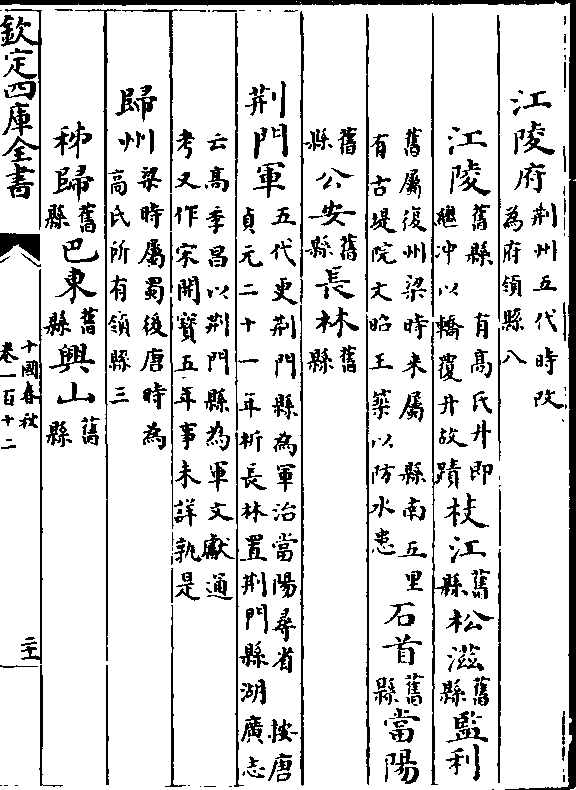 江陵府荆州五代時改
為府領縣八
江陵舊縣 有髙氏井即
繼冲以轎覆井故蹟枝江舊縣松滋舊縣監利
舊屬復州梁時来屬 縣南五里
有古堤院文昭王築以防水患石首舊縣當陽
舊縣公安舊縣長林舊縣
荆門軍五代更荆門縣為軍治當陽尋省 按唐
貞元二十一年析長林置荆門縣湖廣志
云髙季昌以荆門縣為軍文獻通
考又作宋開寳五年事未詳孰是
歸州梁時屬蜀後唐時為
高氏所有領縣三
秭歸舊縣巴東舊縣興山舊縣
欽定四庫全書
十國春秋
卷一百十二
二十